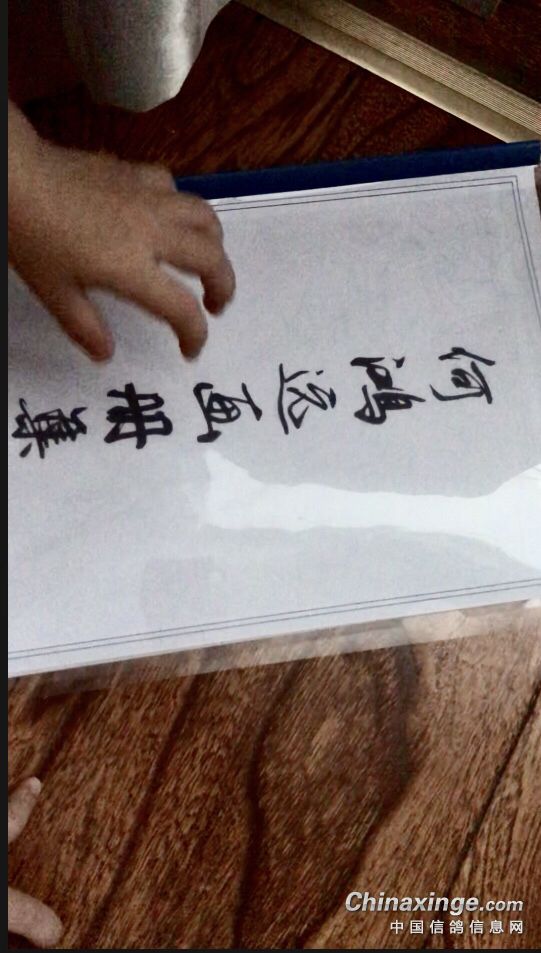 何鸿远画册集
Chinaxinge.com
中国信鸽信息网